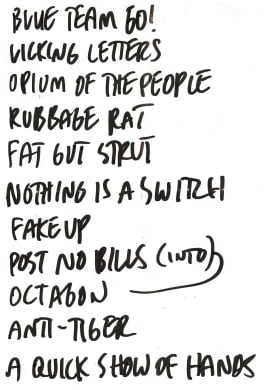 BLUE TEAM GO!
LICKING LETTERS
OPIUM OF THE PEOPLE
RUBBAGE RAT
FAT GUT STRUT
NOTHING IS A SWITCH
FAKE UP
POST NO BILLS (INTO)
OCTAGON
ANTI-TIGER
A QUICK SHOW OF HANDS